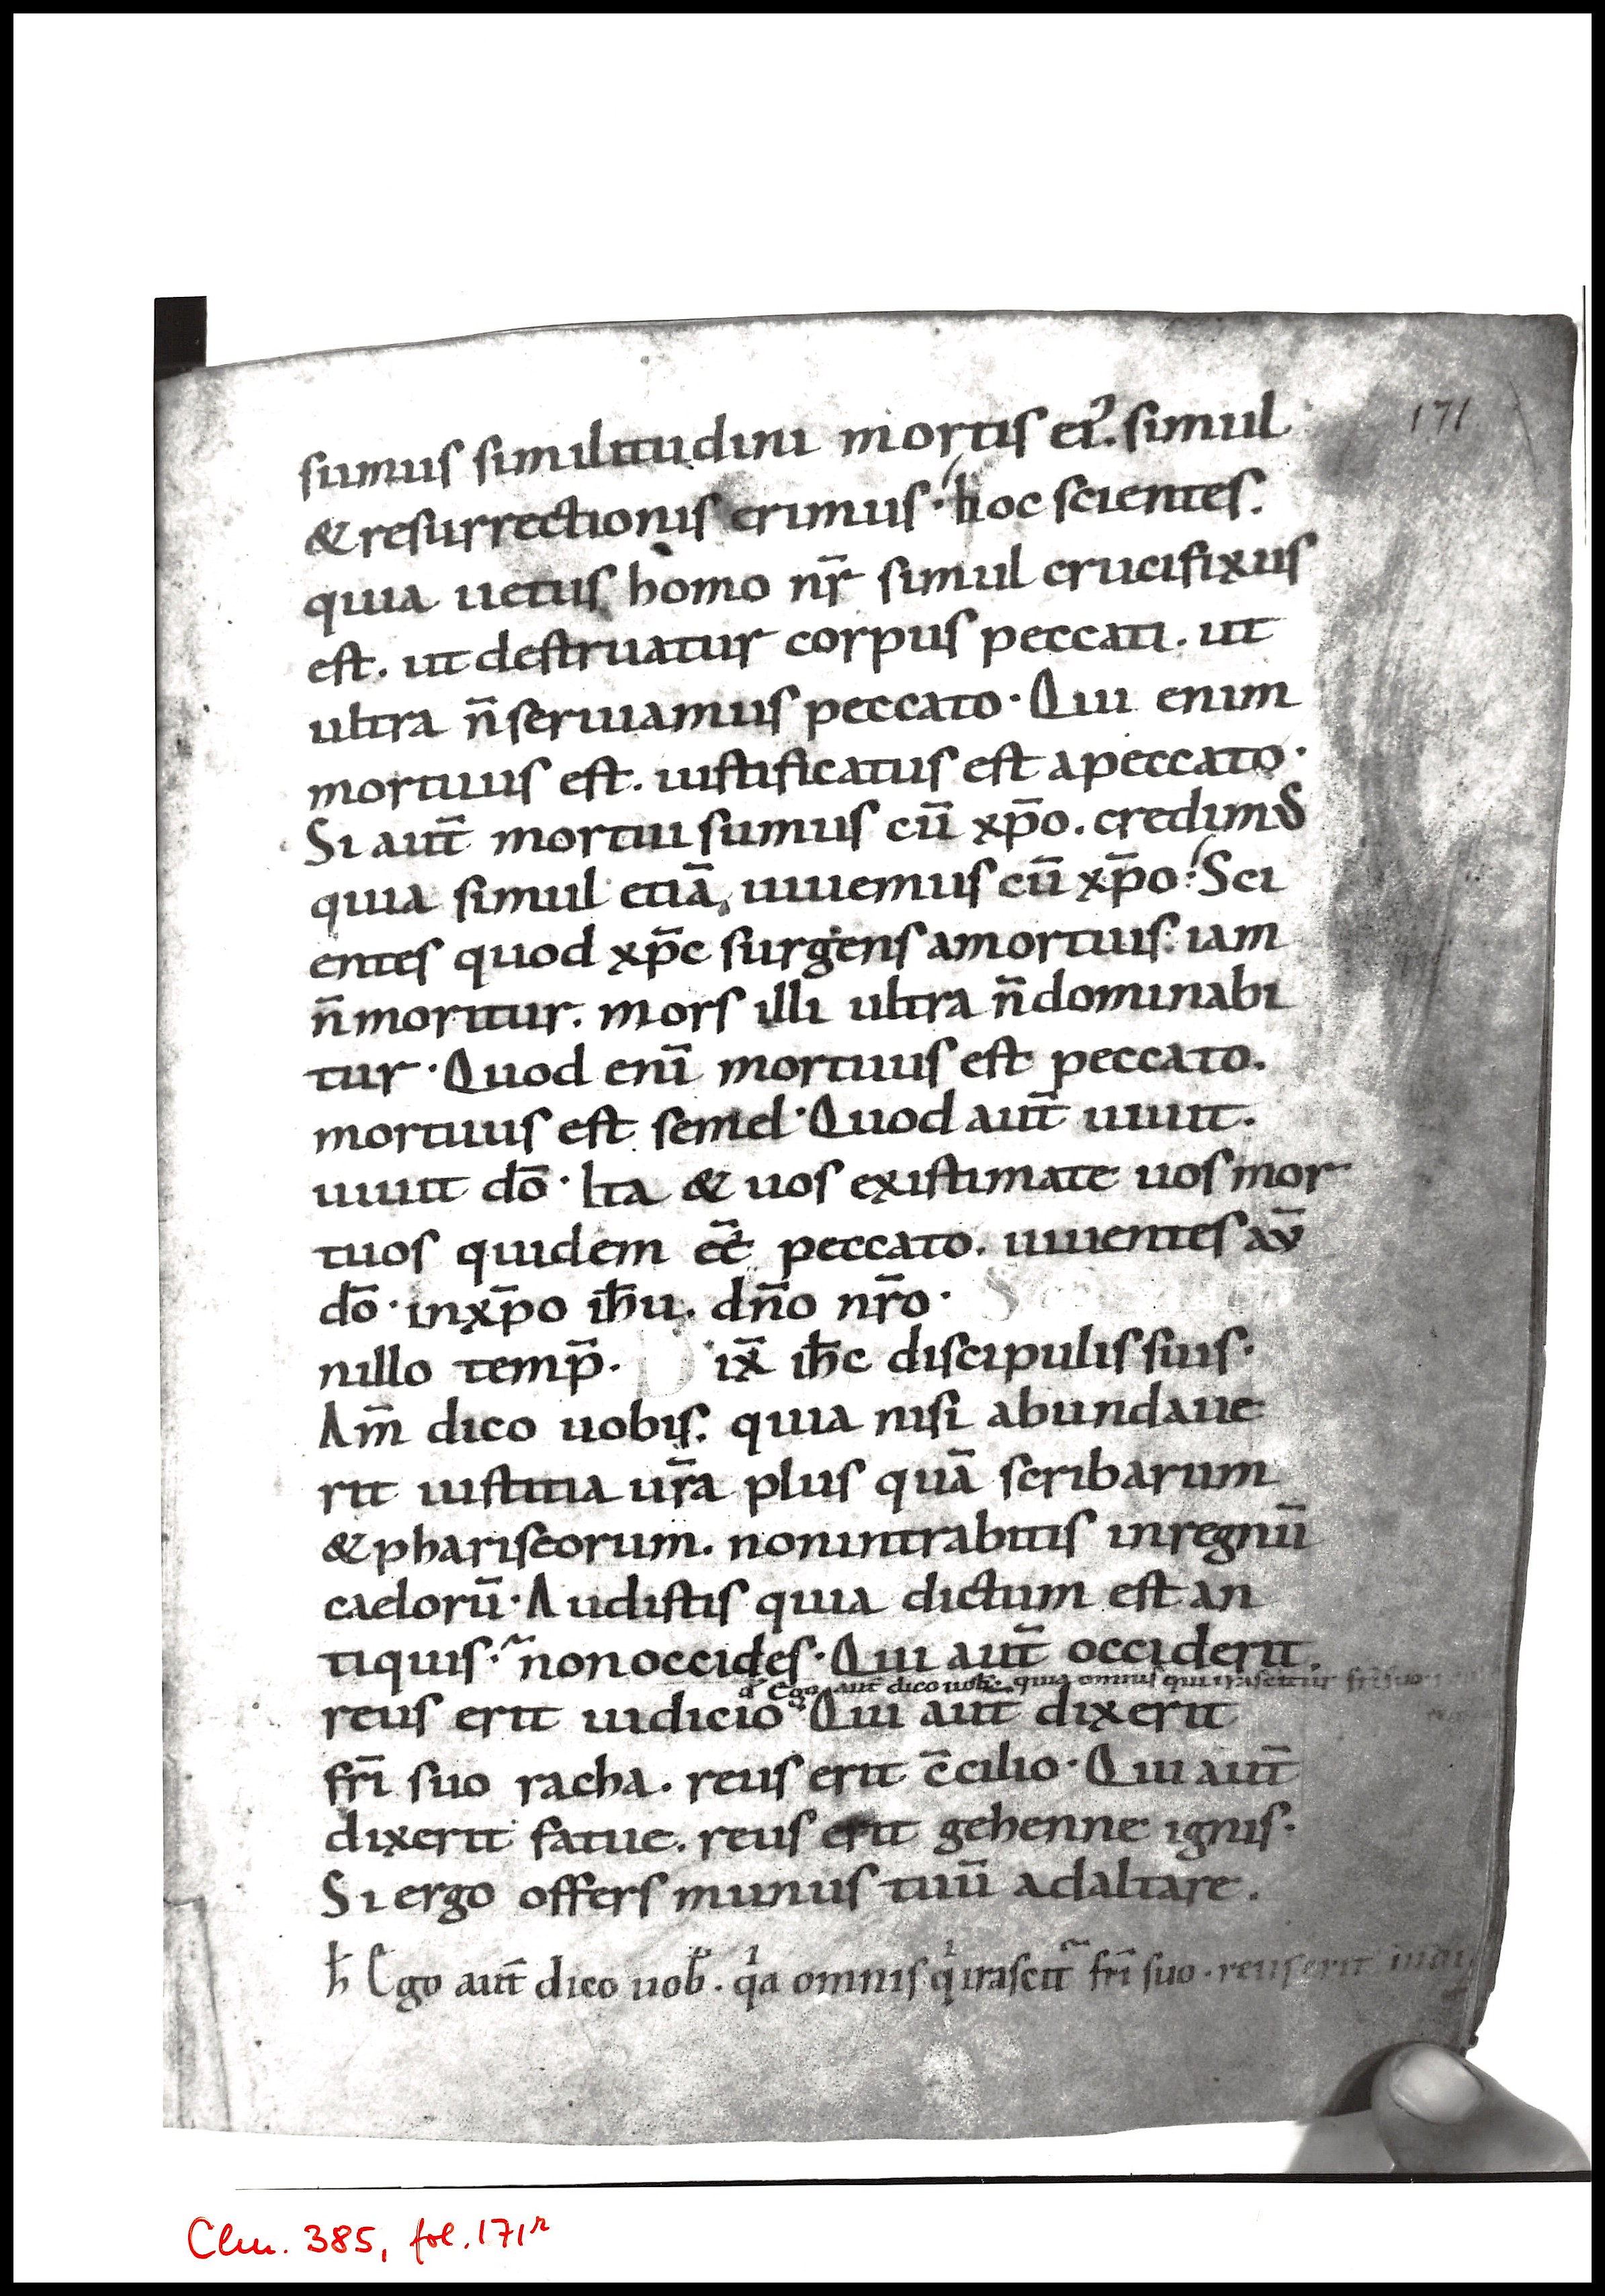 171
sumus similitudini mortis ei᾿. simul
& resurrectionis erimus · hoc scientes.
quia uetus homo nr̄ simul crucifixus
est. ut destruatur corpus peccati. ut
ultra n̄ seruiamus peccato · Qui enim
mortuus est. iustificatus est a peccato ·
Si aut̄ mortui sumus cū xp̄o. credim᾿
quia simul etiā uiuemus cū xp̄o · Sci
entes quod xp̄c surgens a mortuis. iam
n̄ moritur. mors illi ultra n̄ dominabi
tur · Quod enī mortuus est peccato.
mortuus est semel · Quod aut̄ uiuit.
uiuit dō · Ita & uos existimate uos mor
tuos quidem eē peccato. uiuentes aū
dō · in xp̄o ih̄u. dn̄o nr̄o ·
n illo temp̄. Dix̄ ih̄c discipulis suis ·
Am̄ dico uobis. quia nisi abundaue
rit iustitia ur̄a plus quā scribarum
& phariseorum. non intrabitis in regnū
caelorū · Audistis quia dictum est an
tiquis · non occides · Qui aut̄ occiderit.
Ego aut̄ dico uob. quia omnis qui irascitur fr̄i suo
reus erit iudicio · Qui aut̄ dixerit
fr̄i suo racha. reus erit c̄cilio · Qui aut̄
dixerit fatue. reus erit gehenne ignis ·
Si ergo offers munus tuū ad altare.
h̄ Ego aut̄ dico uob. qa omnis q irascit̄ fr̄i suo · reus erit
Clm. 385, fol. 171r